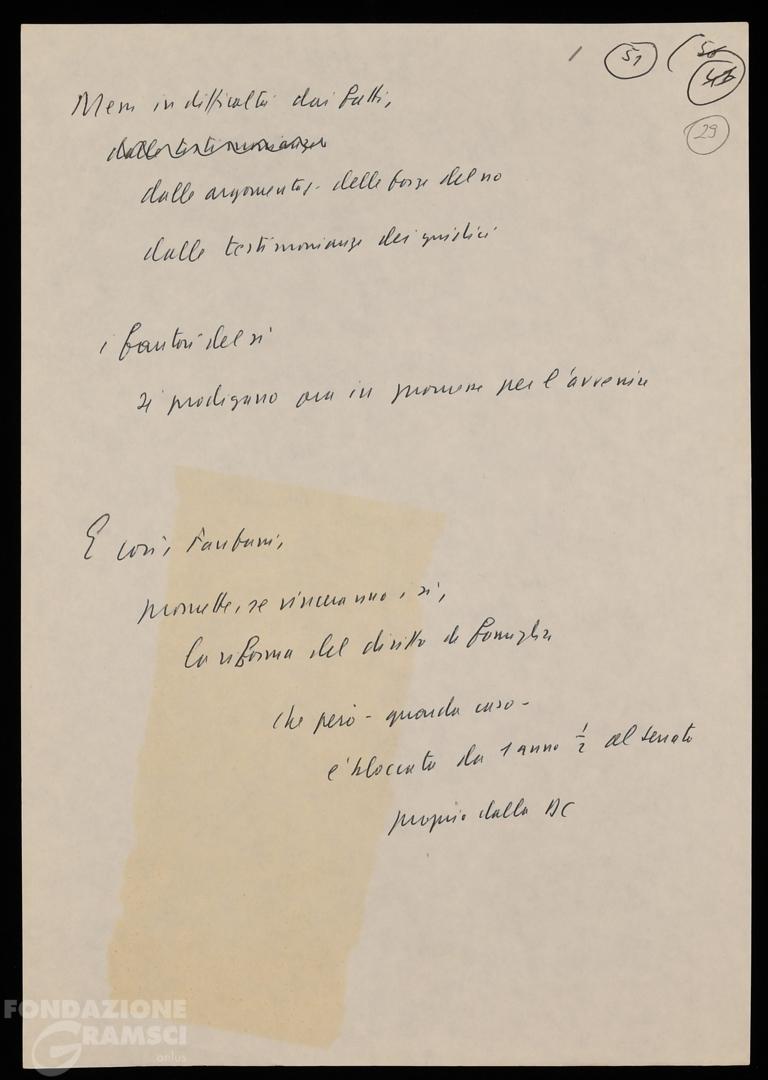 / 51 56 46
29
Messi in difficoltà dai fatti,
dalle testimonianze
dalle argomentaz. delle forze del no
dalle testimonianze dei giudici
i fautori del sì
si prodigano ora in promesse per l'avvenire
E così, Fanfani,
promette, se vinceranno i sì,
la riforma del diritto di famiglia
che però - guarda caso -
è bloccata da 1 anno 1/2 al Senato
proprio dalla DC
FONDAZIONE
GRAMSCI
onlus